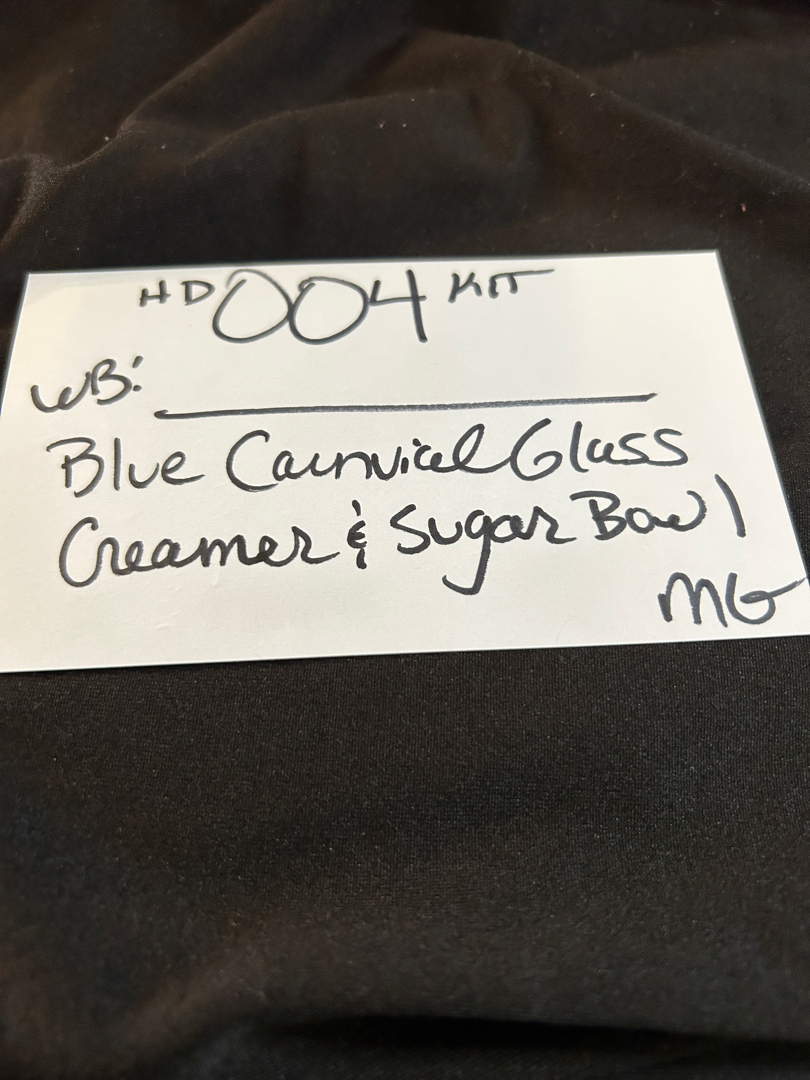 HD 004 KIT
WB:
Blue Cainvial Glass
Creamer & Sugar Bowl
MG